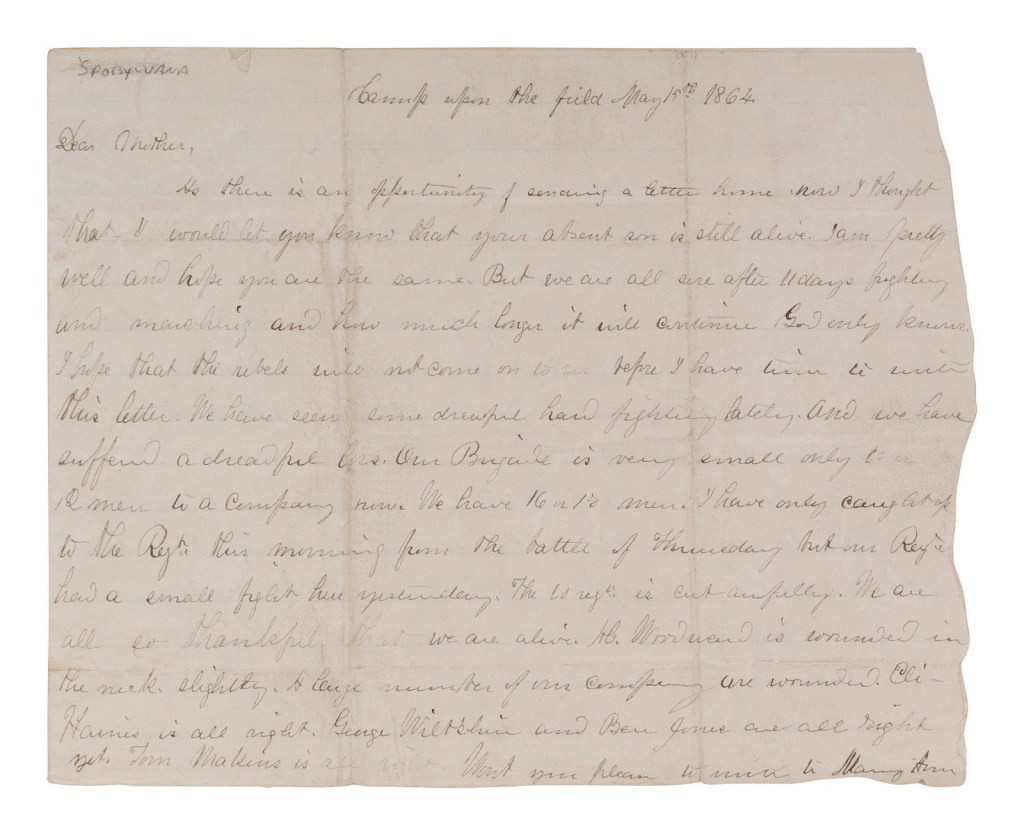 SPOTSYLVANIA
Camp upon the field May 15th 1864
Dear Mother,
As there is an opportunity of sending a letter home now I thought
that I would let you know that your absent son is still alive. I am pretty
well and hope you are the same. But we are all sore after 11 days fighting
and marching and how much longer it will continue God only knows.
I hope that the rebels will not come on to us before I have time to write
this letter. We have seen some dreadful hard fighting lately. And we have
sufferd a dreadful loss. Our Brigade is very small only
12 men to a company now. We have 16 or men. I have only caught up
to the Regt. this morning from the battle of Thursday but our Regt.
had a small fight here yesterday. The 10 regt. is cut awfully. We are
all so thankful that we are alive. Woodward is wounded in
the neck slightly. A large number of our company are wounded. Eli-
Haines is all right. George Wiltshire and Ben Jones are all right
yet. Tom Makins is all right. Wont you please to write to Mary Ann